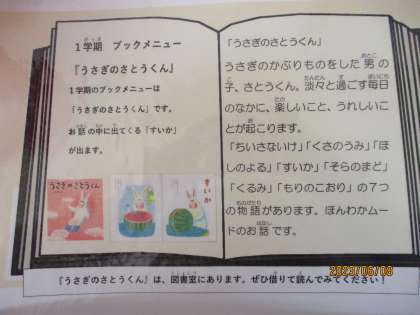 1学期 ブックメニュー
『うさぎのさとうくん』
1学期のブックメニューは
「うさぎのさとうくん」です。
お話の中に出てくる「すいか」
が出ます。
うさぎのさとうくん
すいか
「うさぎのさとうくん」
うさぎのかぶりものをした男の
子、さとうくん。淡々と過ごす毎日
のなかに、楽しいこと、うれしいこ
とが起こります。
「ちいさないけ」「くさのうみ」「ほ
しのよる」「すいか」「そらのまど」
「くるみ」「もりのこおり」の7つ
の物語があります。ほんわかムー
ドのお話です。
『うさぎのさとうくん』は、図書室にあります。ぜひ借りて読んでみてください!
2023/06/08